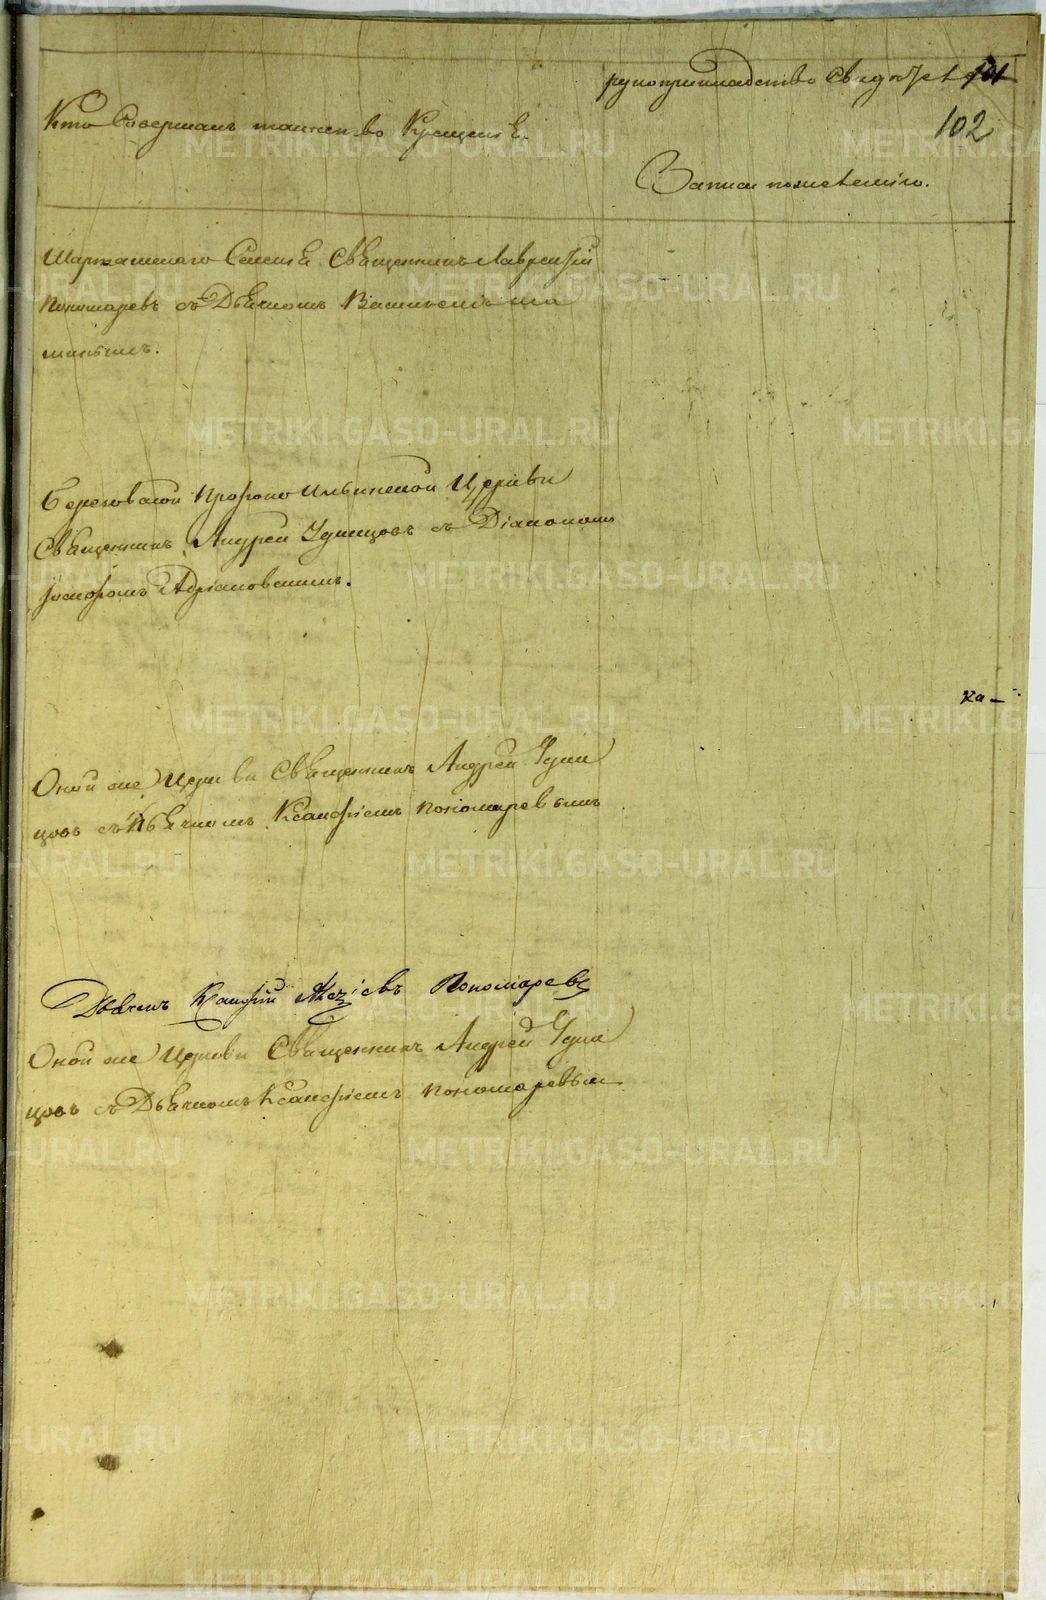 рукоприкладство свидѣте
101
102
Кто Совершалъ таинство Крещенія.
Записи пожеланію.
Шарташскаго Селенія Священникъ Лаврентій
Пономаревъ съ Дьячкомъ Василіемъ
Березовской Пророко Ильинской Церкви
Священникъ Андрей Удинцовъ съ Діакономъ
Адріановскимъ.
ка-
Оной же Церкви Священникъ Андрей Удин
цовъ съ Дьячкомъ Ксанфіемъ Пономаревымъ
Дьячекъ Ксанфій Пономаревъ
Оной же Церкви Священникъ Андрей Удин
цовъ съ Дьячкомъ Ксанфіемъ Пономаревым
METRIKI.GASO-URAL.RU